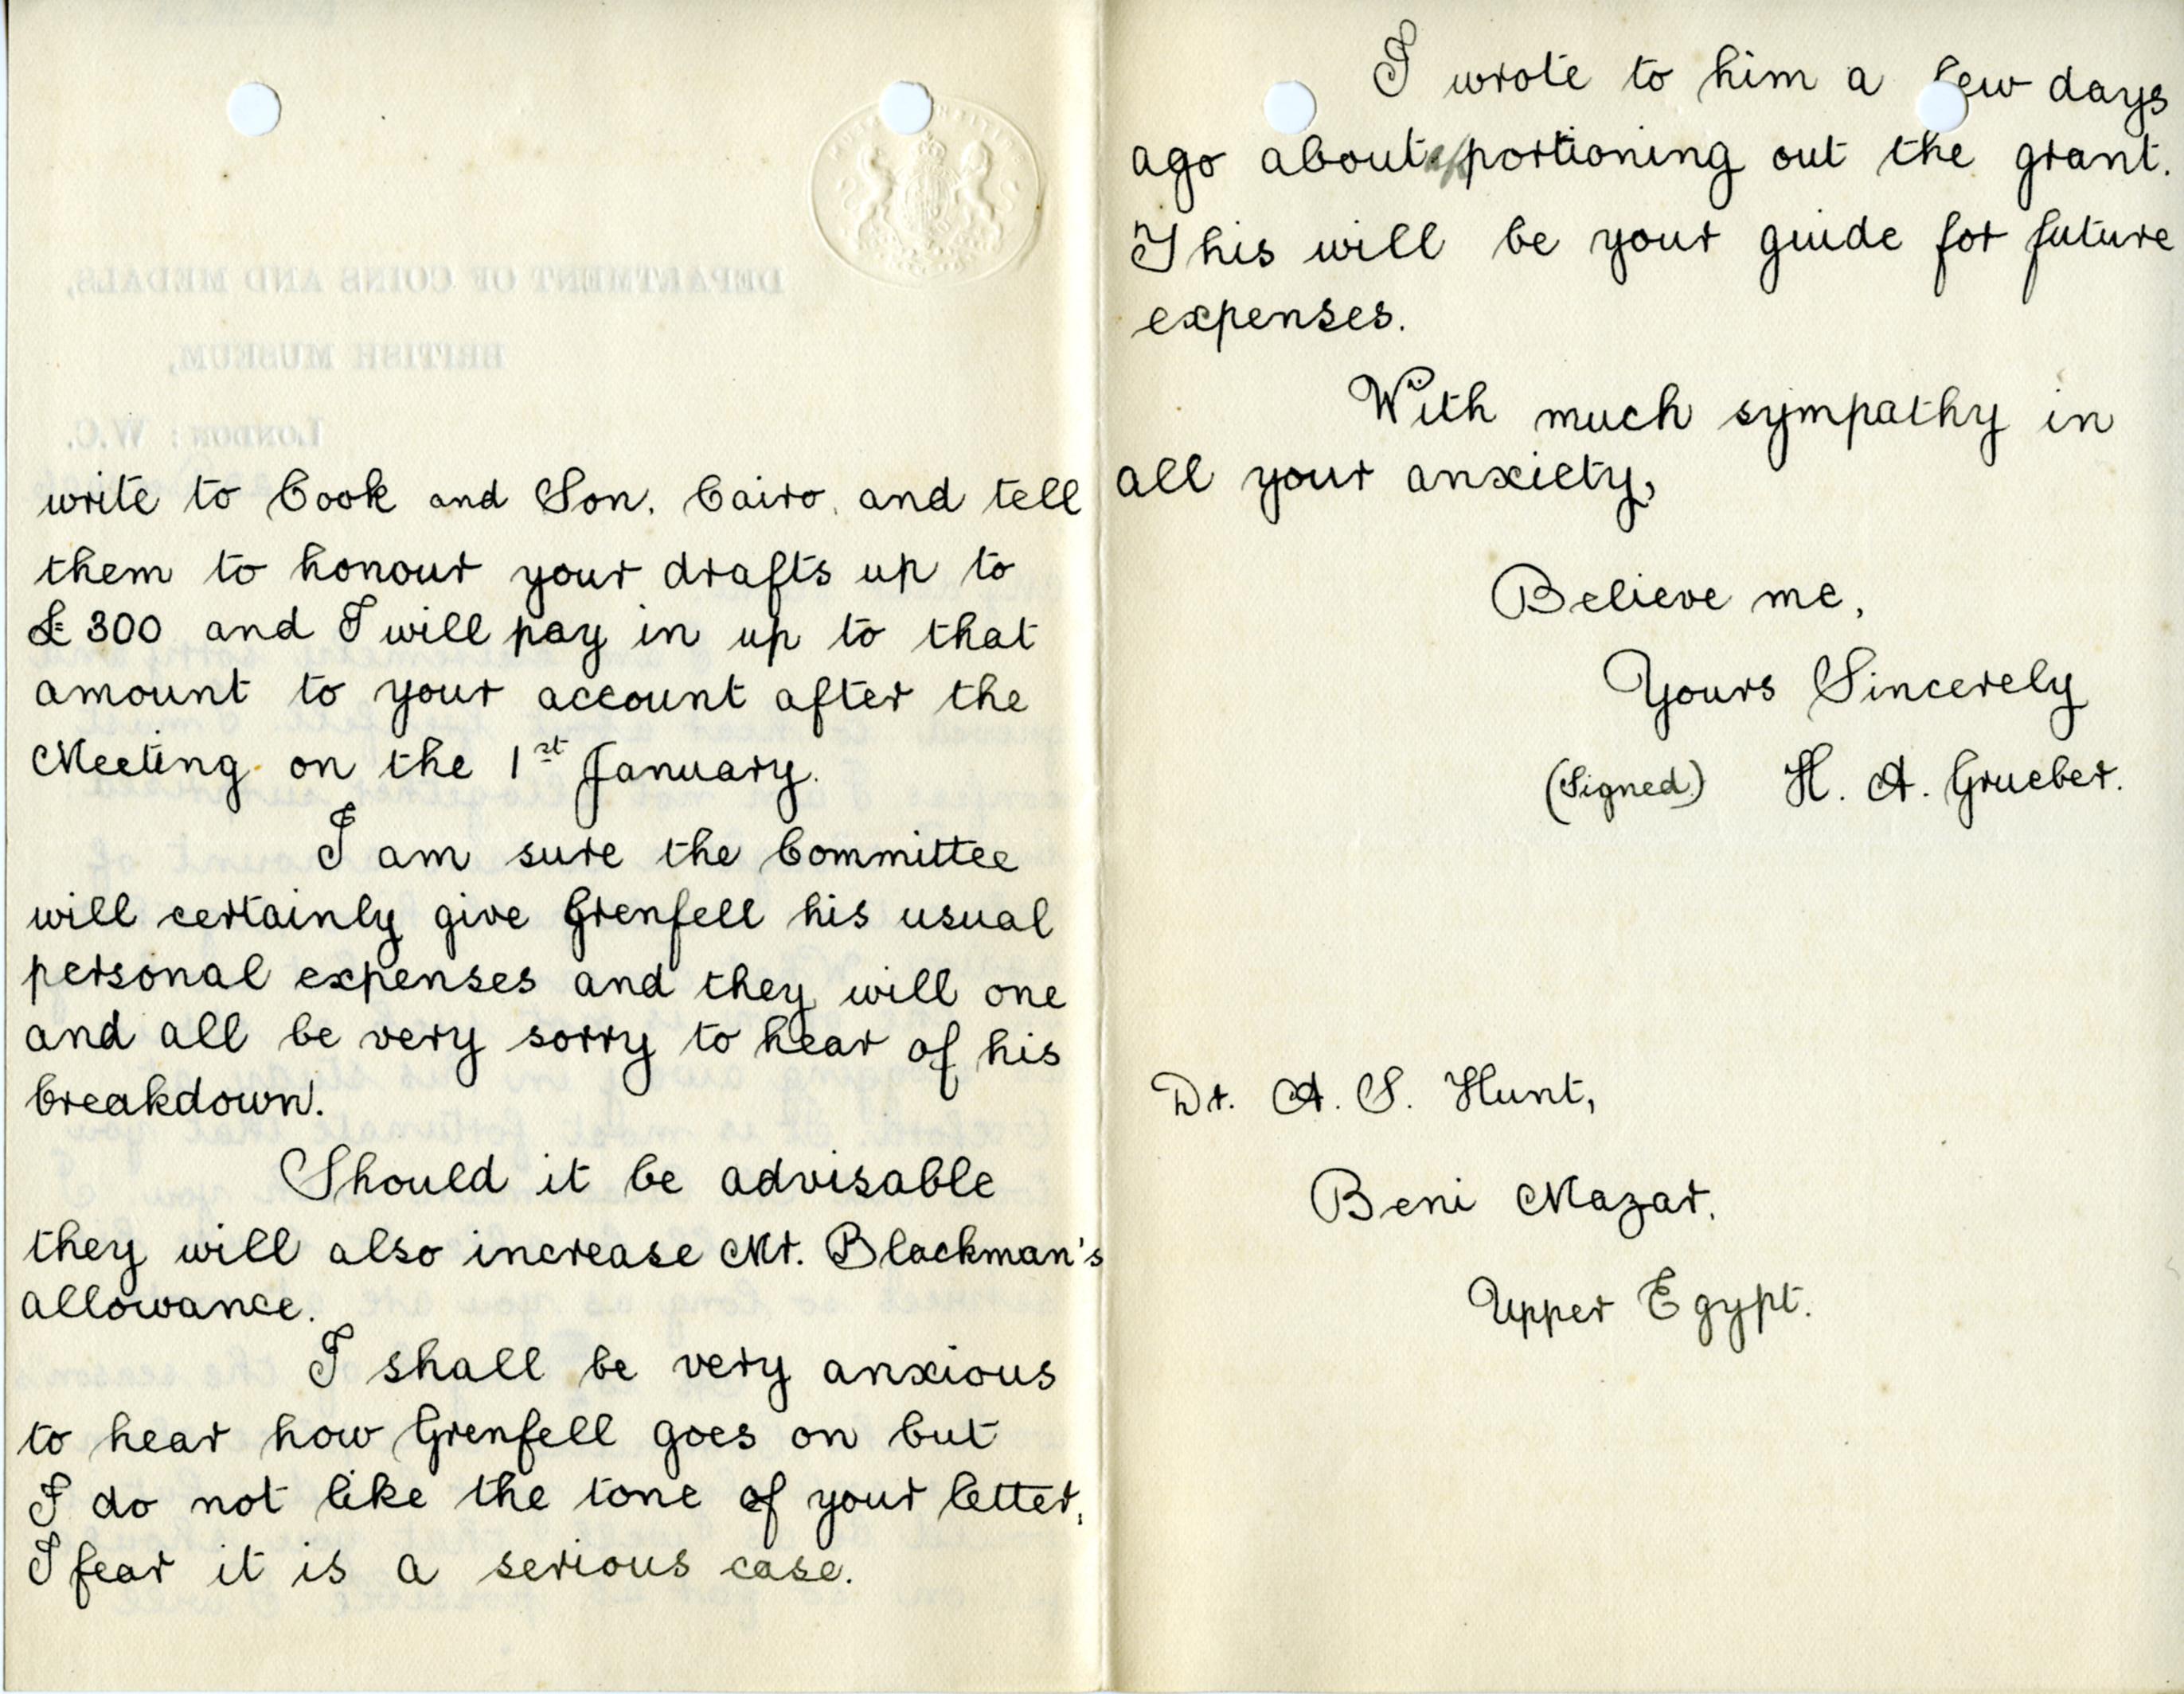 write to Cook and Son, Cairo, and tell
them to honour your drafts up to
£300 and I will pay in up to that
amount to your account after the
Meeting on the 1st January.
I am sure the Committee
will certainly give Grenfell his usual
personal expenses and they will one
and all be very sorry to hear of his
breakdown.
Should it be advisable
they will also increase Mr. Blackman's
allowance.
I shall be very anxious
to hear how Grenfell goes on but
I do not like the tone of your letter,
I fear it is a serious case.
I wrote to him a few days
ago about apportioning out the grant.
This will be your guide for future
expenses.
With much sympathy in
all your anxiety,
Believe me,
Yours Sincerely
(Signed) H. A. Grueber.
Dr. A. S. Hunt,
Beni Mazar.
Upper Egypt.
DEPARTMENT OF COINS AND MEDALS,
BRITISH MUSEUM,
LONDON: W.C.